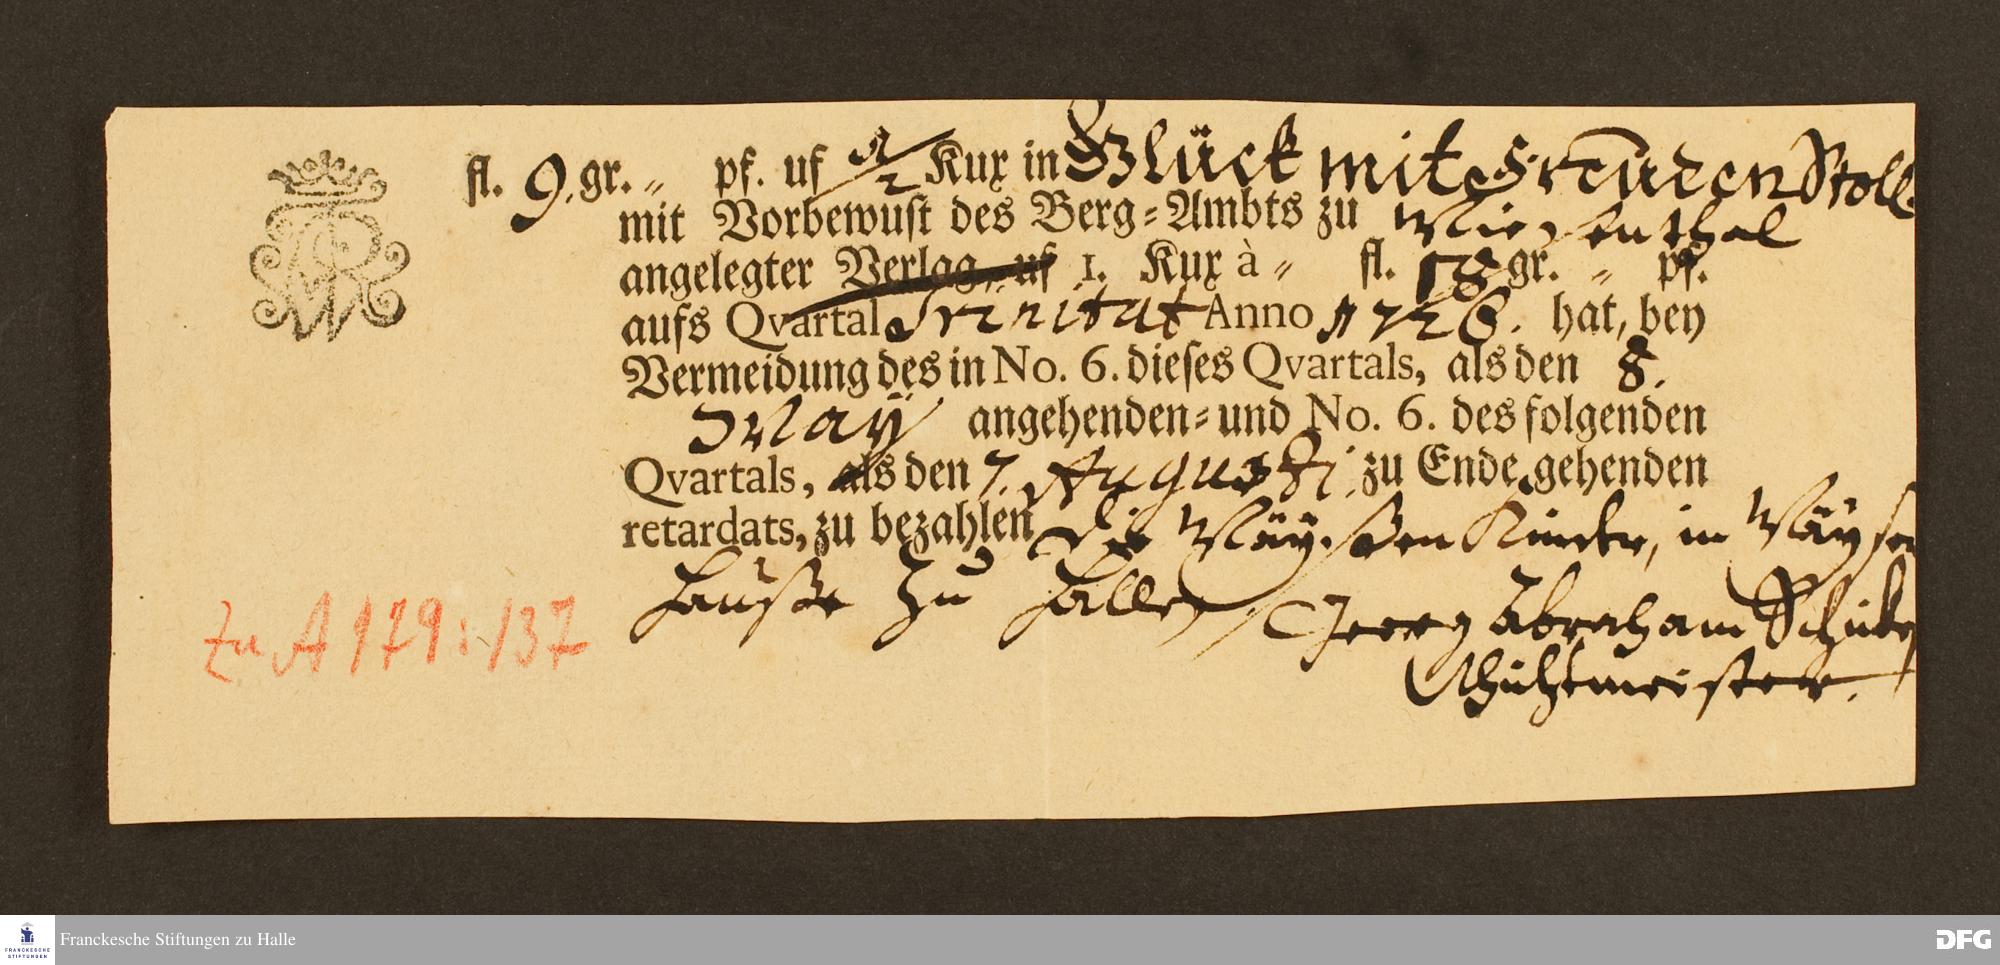 fl. 9. gr. „ pf. uf 1/2 Kux in Glück mit Freüden Stoll.
mit Vorbewust des Berg-Ambts zu Wiesenthal
angelegter Verlag uf 1. Kux à „ fl. 18 gr. „ pf.
aufs Qvartal Trinitat Anno 1728. hat, bey
Vermeidung des in No. 6. dieses Qvartals, als den 8.
May angehenden- und No. 6. des folgenden
Qvartals, als den 7. Augusti zu Ende gehenden
retardats, zu bezahlen die Wäysen Kinder, in Wäysen
Hauße zu Halle
Georg Abraham
Schichtmeister.
zu A 179:137
FRANCKESCHE STIFTUNGEN
Franckesche Stiftungen zu Halle
DFG